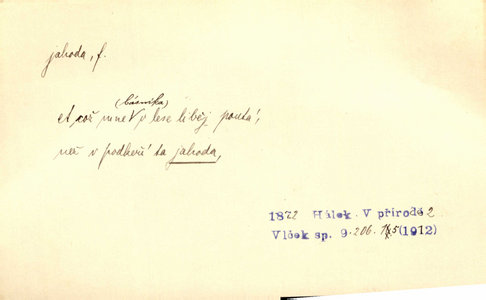 jahoda, f.
(básníka)
A což mne V v lese líběj poutá,
než v podkeří ta jahoda,
1872 Hálek. V přírodě 2
Vlček sp. 9.206. (1912)